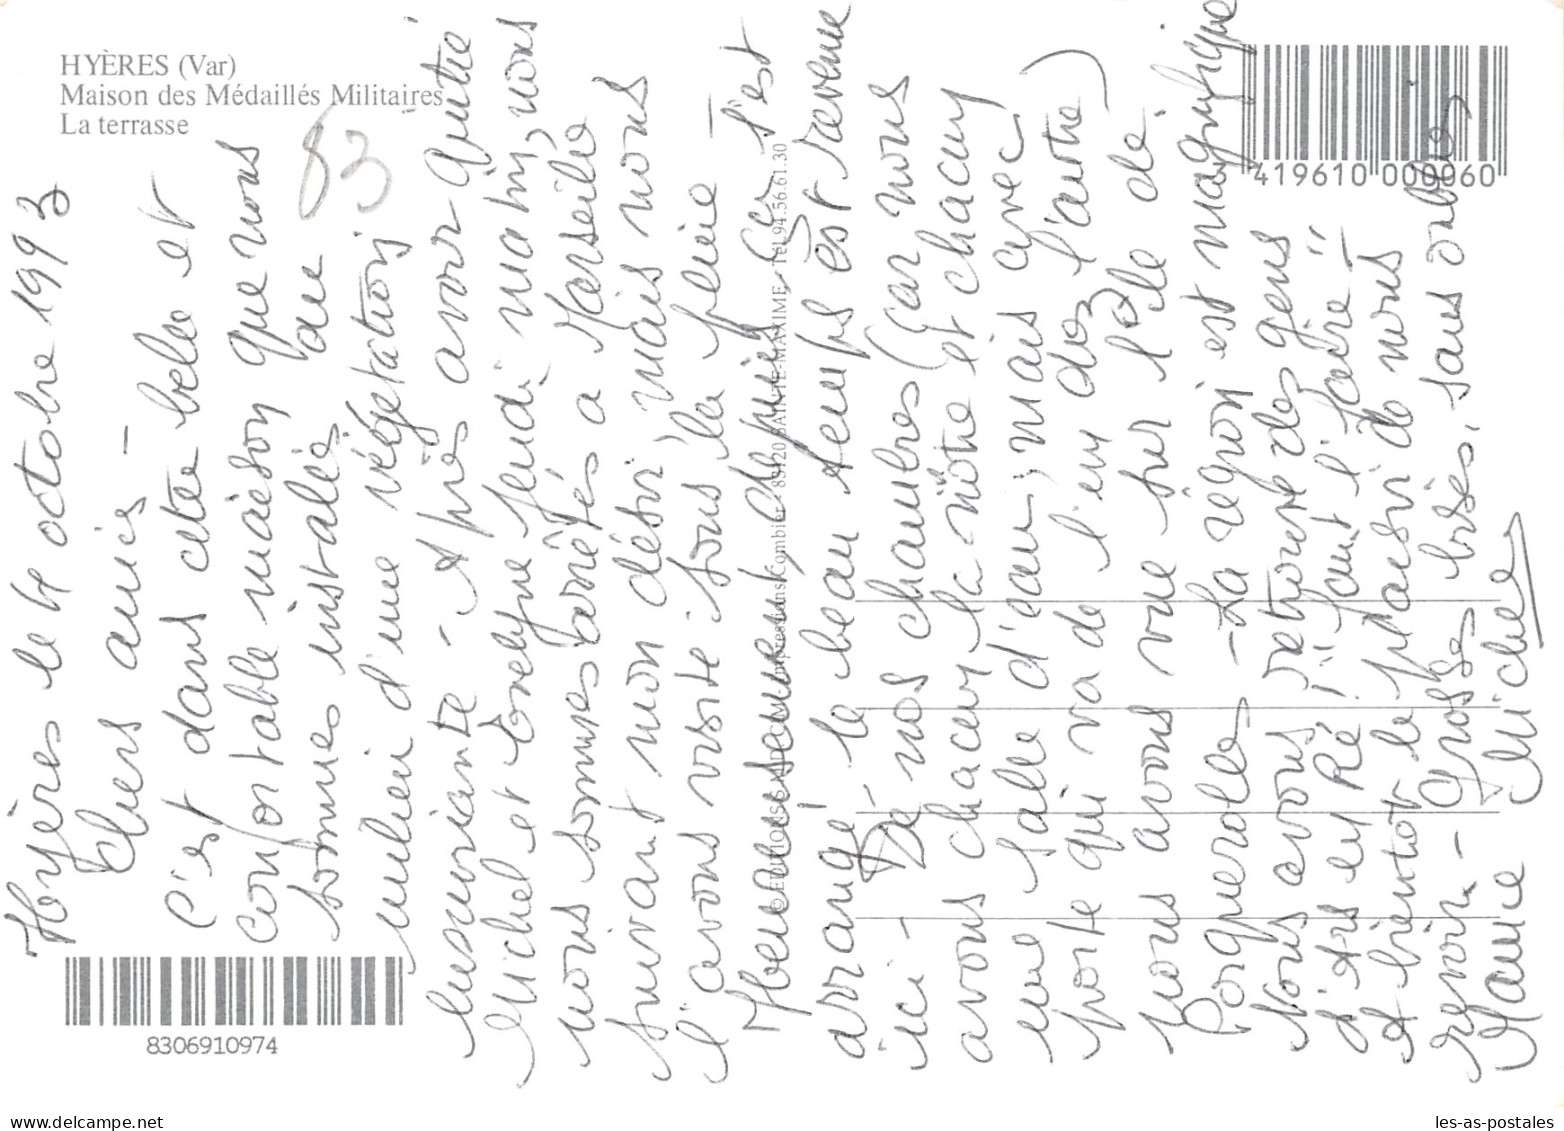 HYÈRES (Var)
Maison des Médaillés Militaires
La terrasse
83
419610 000060
Hyères le 4 octobre 1993
Chers amis -
C'est dans cette belle et
confortable maison que nous
sommes installés au
milieu d'une végétation
luxuriante - Après avoir quitté
Michel et Evelyne jeudi matin, nous
nous sommes arrêtés à Marseille
suivant mon désir, mais nous
l'avons visité sous la pluie -
Heureusement, depuis ça s'est
arrangé, le beau temps est revenu
ici - De nos chambres (car nous
avons chacun la nôtre et chacun
une salle d'eau, mais avec
porte qui va de l'un chez l'autre)
nous avons vue sur l'île de
Porquerolles - La région est magnifique
Nous avons retrouvé des gens
d'Ars en Ré ! "faut l'faire" -
A bientôt le plaisir de vous
revoir - Grosses bises, sans oublier
Mamie Michel
© EDITIONS Impressions Combier - 83120 SAINTE-MAXIME - Tél. 94.56.61.30
8306910974
les-as-postales
www.delcampe.net